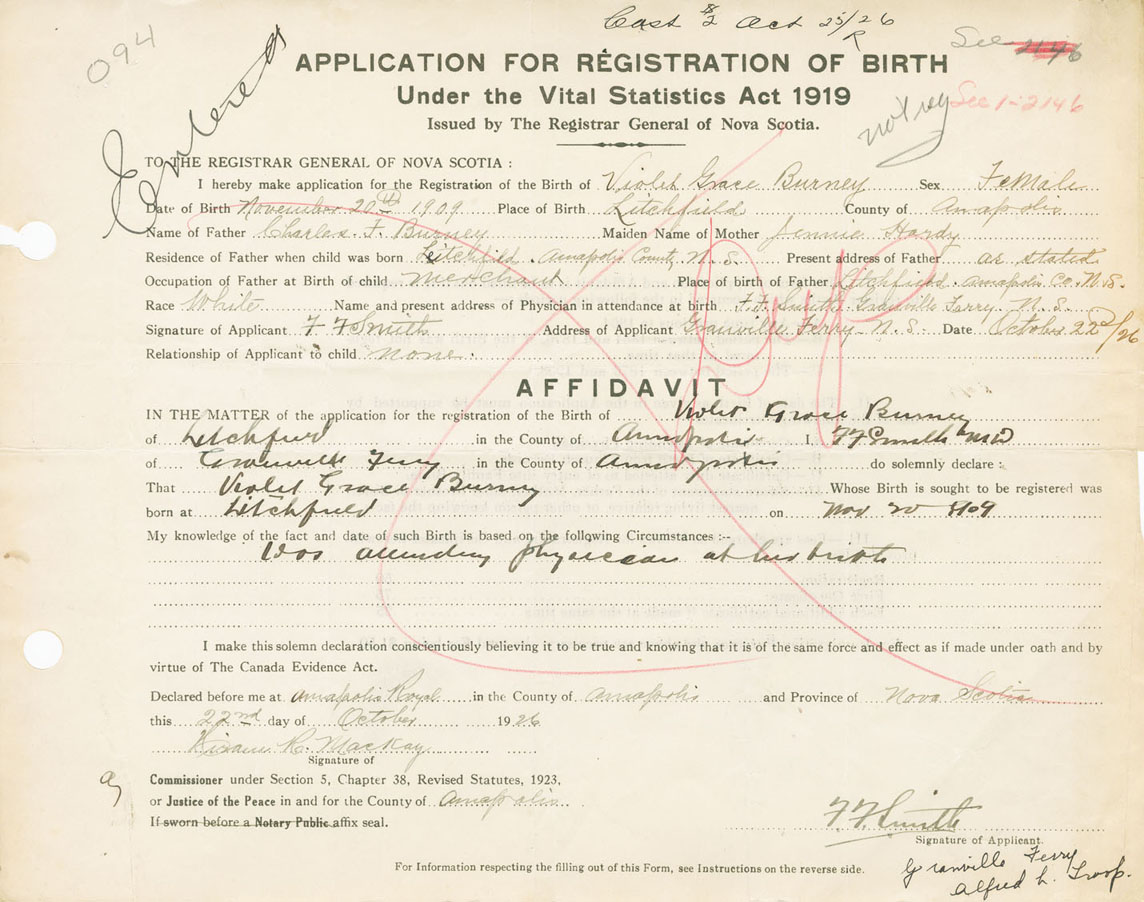 Cash Oct 25/26
R
094
Entered
See 1146
APPLICATION FOR REGISTRATION OF BIRTH
Under the Vital Statistics Act 1919
not reg
See 1-2146
Issued by The Registrar General of Nova Scotia.
TO THE REGISTRAR GENERAL OF NOVA SCOTIA :
I hereby make application for the Registration of the Birth of Violet Grace Burney Sex FeMale
Date of Birth November 20th 1909 Place of Birth Litchfield County of Anapolis
Name of Father Charles F. Burney Maiden Name of Mother Jennie Hardy
Residence of Father when child was born Litchfield. Anapolis County N. S. Present address of Father as stated
Occupation of Father at Birth of child merchant Place of birth of Father Litchfield. Anapolis Co. N.S.
Race White Name and present address of Physician in attendance at birth F.F. Smith Granville Ferry N. S.
Signature of Applicant F F Smith Address of Applicant Granville Ferry N. S. Date October 22nd/26
Relationship of Applicant to child None.
Dup
AFFIDAVIT
IN THE MATTER of the application for the registration of the Birth of Violet Grace Burney
of Litchfield in the County of Annapolis I. FF Smith MD
of Granville Ferry in the County of Annapolis do solemnly declare :
That Violet Grace Burney Whose Birth is sought to be registered was
born at Litchfield on Nov 20 1909
My knowledge of the fact and date of such Birth is based on the following Circumstances :--
Was attending physician at his birth
I make this solemn declaration conscientiously believing it to be true and knowing that it is of the same force and effect as if made under oath and by
virtue of The Canada Evidence Act.
Declared before me at Annapolis Royal in the County of Annapolis and Province of Nova Scotia
this 22nd day of October 1926
R. MacKay
Signature of
Commissioner under Section 5, Chapter 38, Revised Statutes, 1923,
or Justice of the Peace in and for the County of Annapolis
If sworn before a Notary Public affix seal.
F F Smith
Signature of Applicant.
Granville Ferry
Alfred L. Troop.
For Information respecting the filling out of this Form, see Instructions on the reverse side.